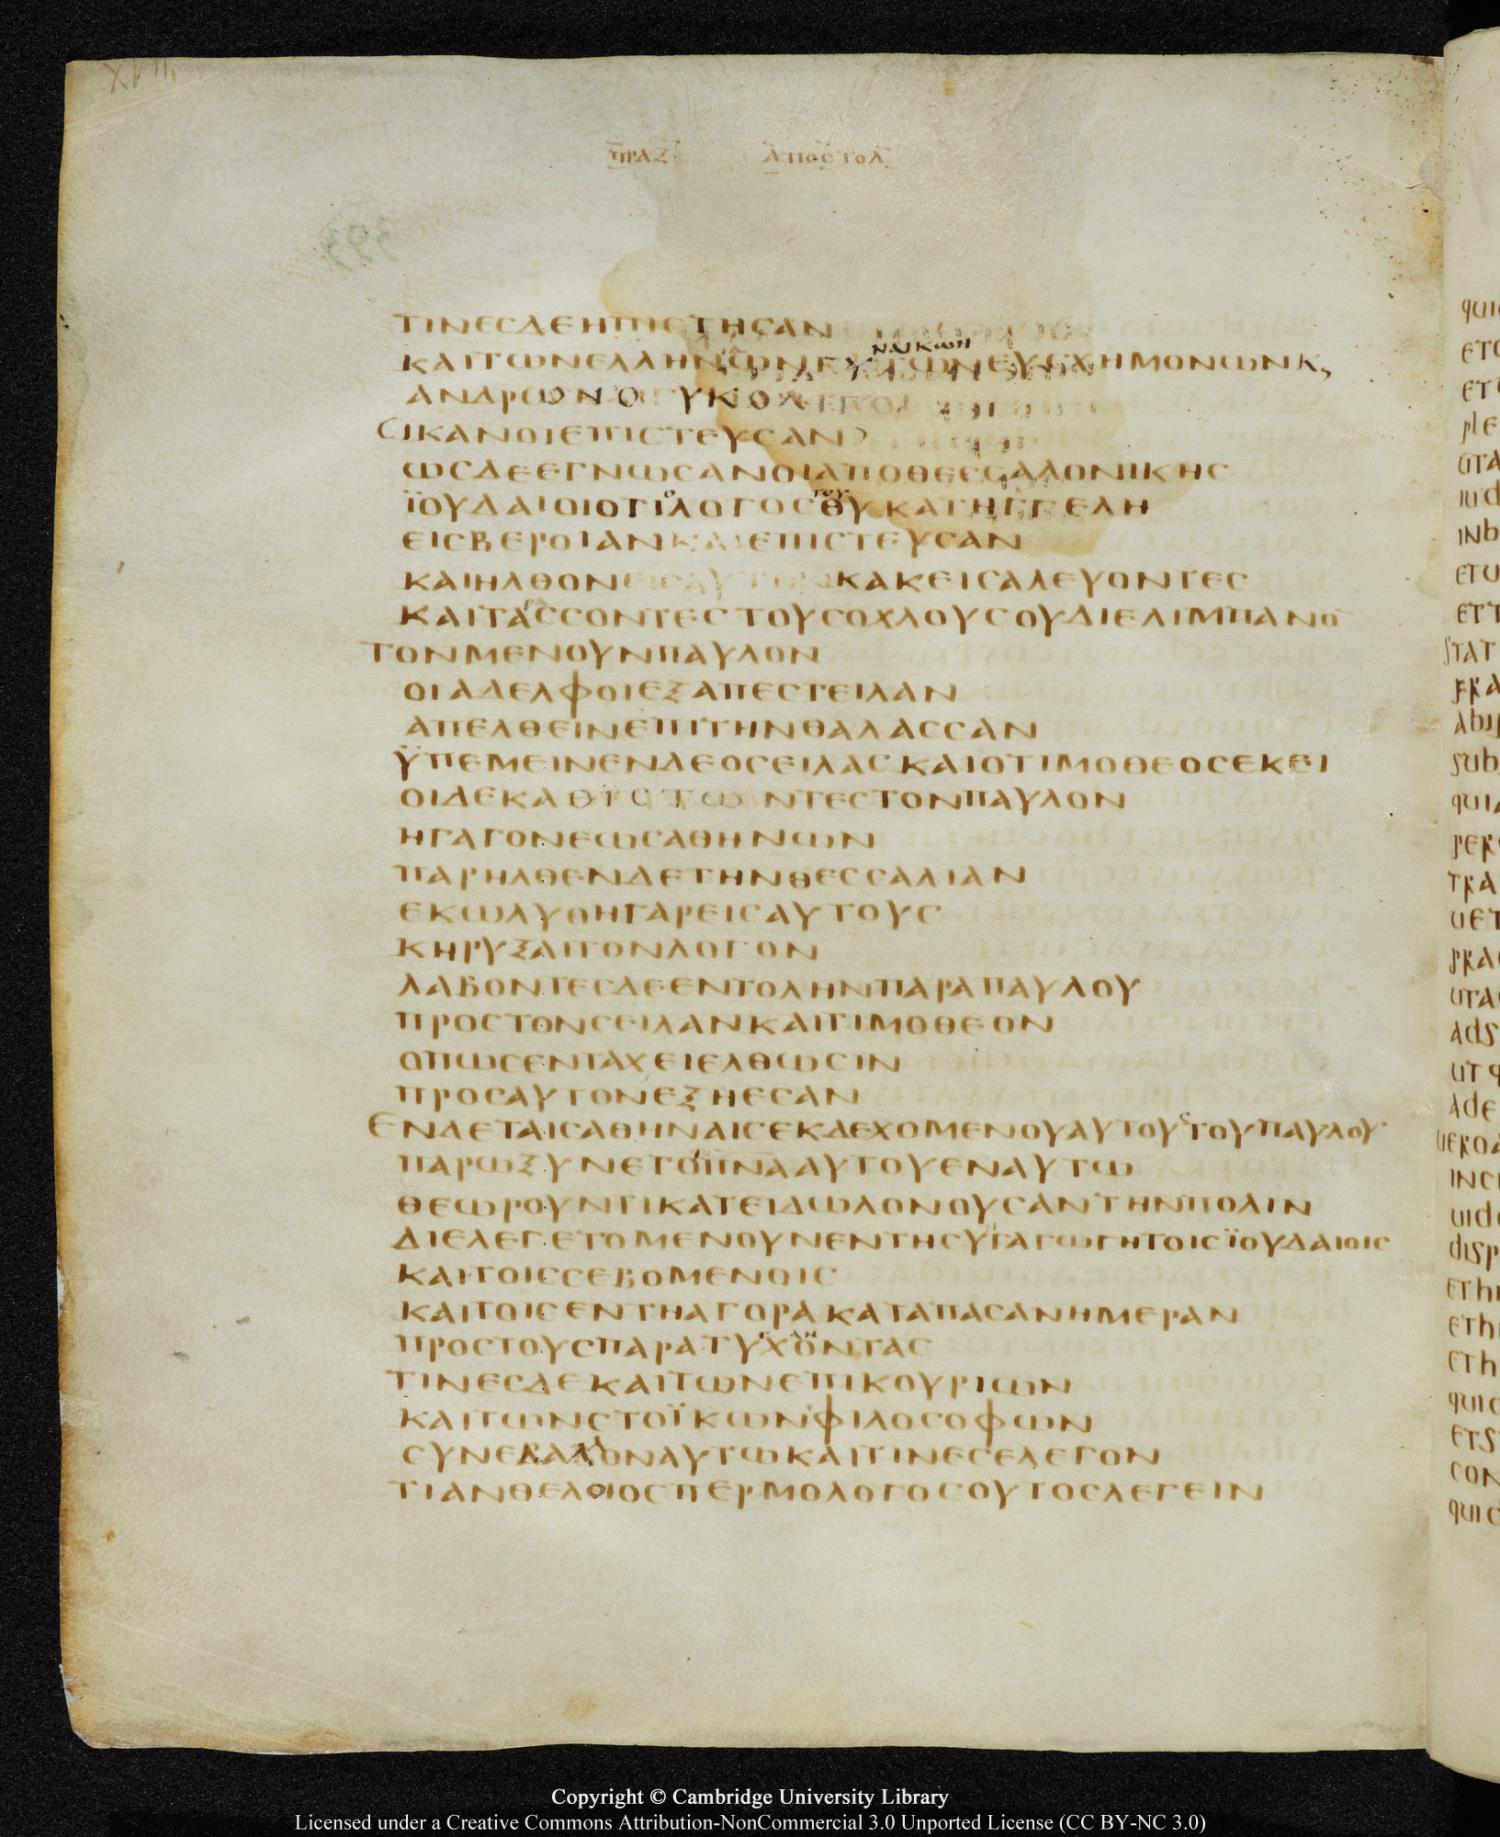 ΠΡΑΞ ΑΠΟΣΤΟΛ
ΤΙΝΕΣΔΕΗΠΙΣΤΗΣΑΝ
ΚΑΙΤΩΝΕΛΛΗΝΩΝ ΤΩΝΕΥΣΧΗΜΟΝΩΝΚ,
ΑΝΔΡΩΝ
ΙΚΑΝΟΙΕΠΙΣΤΕΥΣΑΝ
ΩΣΔΕΕΓΝΩΣΑΝΟΙΑΠΟΘΕΣΣΑΛΟΝΙΚΗΣ
ΪΟΥΔΑΙΟΙΟΤΙΛΟΓΟΣΘΥΚΑΤΗΓΓΕΛΗ
ΕΙΣΒΕΡΟΙΑΝΚΑΙΕΠΙΣΤΕΥΣΑΝ
ΚΑΙΗΛΘΟΝΕΙΣΑΥΤΗΝΚΑΚΕΙΣΑΛΕΥΟΝΤΕΣ
ΚΑΙΤΑΣΣΟΝΤΕΣΤΟΥΣΟΧΛΟΥΣΟΥΔΙΕΛΙΜΠΑΝΟ̅
ΤΟΝΜΕΝΟΥΝΠΑΥΛΟΝ
ΟΙΑΔΕΛΦΟΙΕΞΑΠΕΣΤΕΙΛΑΝ
ΑΠΕΛΘΕΙΝΕΠΙΤΗΝΘΑΛΑΣΣΑΝ
ΫΠΕΜΕΙΝΕΝΔΕΟΣΕΙΛΑΣΚΑΙΟΤΙΜΟΘΕΟΣΕΚΕΙ
ΟΙΔΕΚΑΘΙΣΤΩΝΤΕΣΤΟΝΠΑΥΛΟΝ
ΗΓΑΓΟΝΕΩΣΑΘΗΝΩΝ
ΠΑΡΗΛΘΕΝΔΕΤΗΝΘΕΣΣΑΛΙΑΝ
ΕΚΩΛΥΘΗΓΑΡΕΙΣΑΥΤΟΥΣ
ΚΗΡΥΞΑΙΤΟΝΛΟΓΟΝ
ΛΑΒΟΝΤΕΣΔΕΕΝΤΟΛΗΝΠΑΡΑΠΑΥΛΟΥ
ΠΡΟΣΤΟΝΣΕΙΛΑΝΚΑΙΤΙΜΟΘΕΟΝ
ΟΠΩΣΕΝΤΑΧΕΙΕΛΘΩΣΙΝ
ΠΡΟΣΑΥΤΟΝΕΞΗΕΣΑΝ
ΕΝΔΕΤΑΙΣΑΘΗΝΑΙΣΕΚΔΕΧΟΜΕΝΟΥΑΥΤΟΥΤΟΥΠΑΥΛΟΥ
ΠΑΡΩΞΥΝΕΤΟΠΝΑΑΥΤΟΥΕΝΑΥΤΩ
ΘΕΩΡΟΥΝΤΙΚΑΤΕΙΔΩΛΟΝΟΥΣΑΝΤΗΝΠΟΛΙΝ
ΔΙΕΛΕΓΕΤΟΜΕΝΟΥΝΕΝΤΗΣΥΓΑΓΩΓΗΤΟΙΣΪΟΥΔΑΙΟΙΣ
ΚΑΙΤΟΙΣΣΕΒΟΜΕΝΟΙΣ
ΚΑΙΤΟΙΣΕΝΤΗΑΓΟΡΑΚΑΤΑΠΑΣΑΝΗΜΕΡΑΝ
ΠΡΟΣΤΟΥΣΠΑΡΑΤΥΧΟΝΤΑΣ
ΤΙΝΕΣΔΕΚΑΙΤΩΝΕΠΙΚΟΥΡΙΩΝ
ΚΑΙΤΩΝΣΤΟΪΚΩΝΦΙΛΟΣΟΦΩΝ
ΣΥΝΕΒΑΛΟΝΑΥΤΩΚΑΙΤΙΝΕΣΕΛΕΓΟΝ
ΤΙΑΝΘΕΛΟΙΟΣΠΕΡΜΟΛΟΓΟΣΟΥΤΟΣΛΕΓΕΙΝ
Copyright © Cambridge University Library
Licensed under a Creative Commons Attribution-NonCommercial 3.0 Unported License (CC BY-NC 3.0)